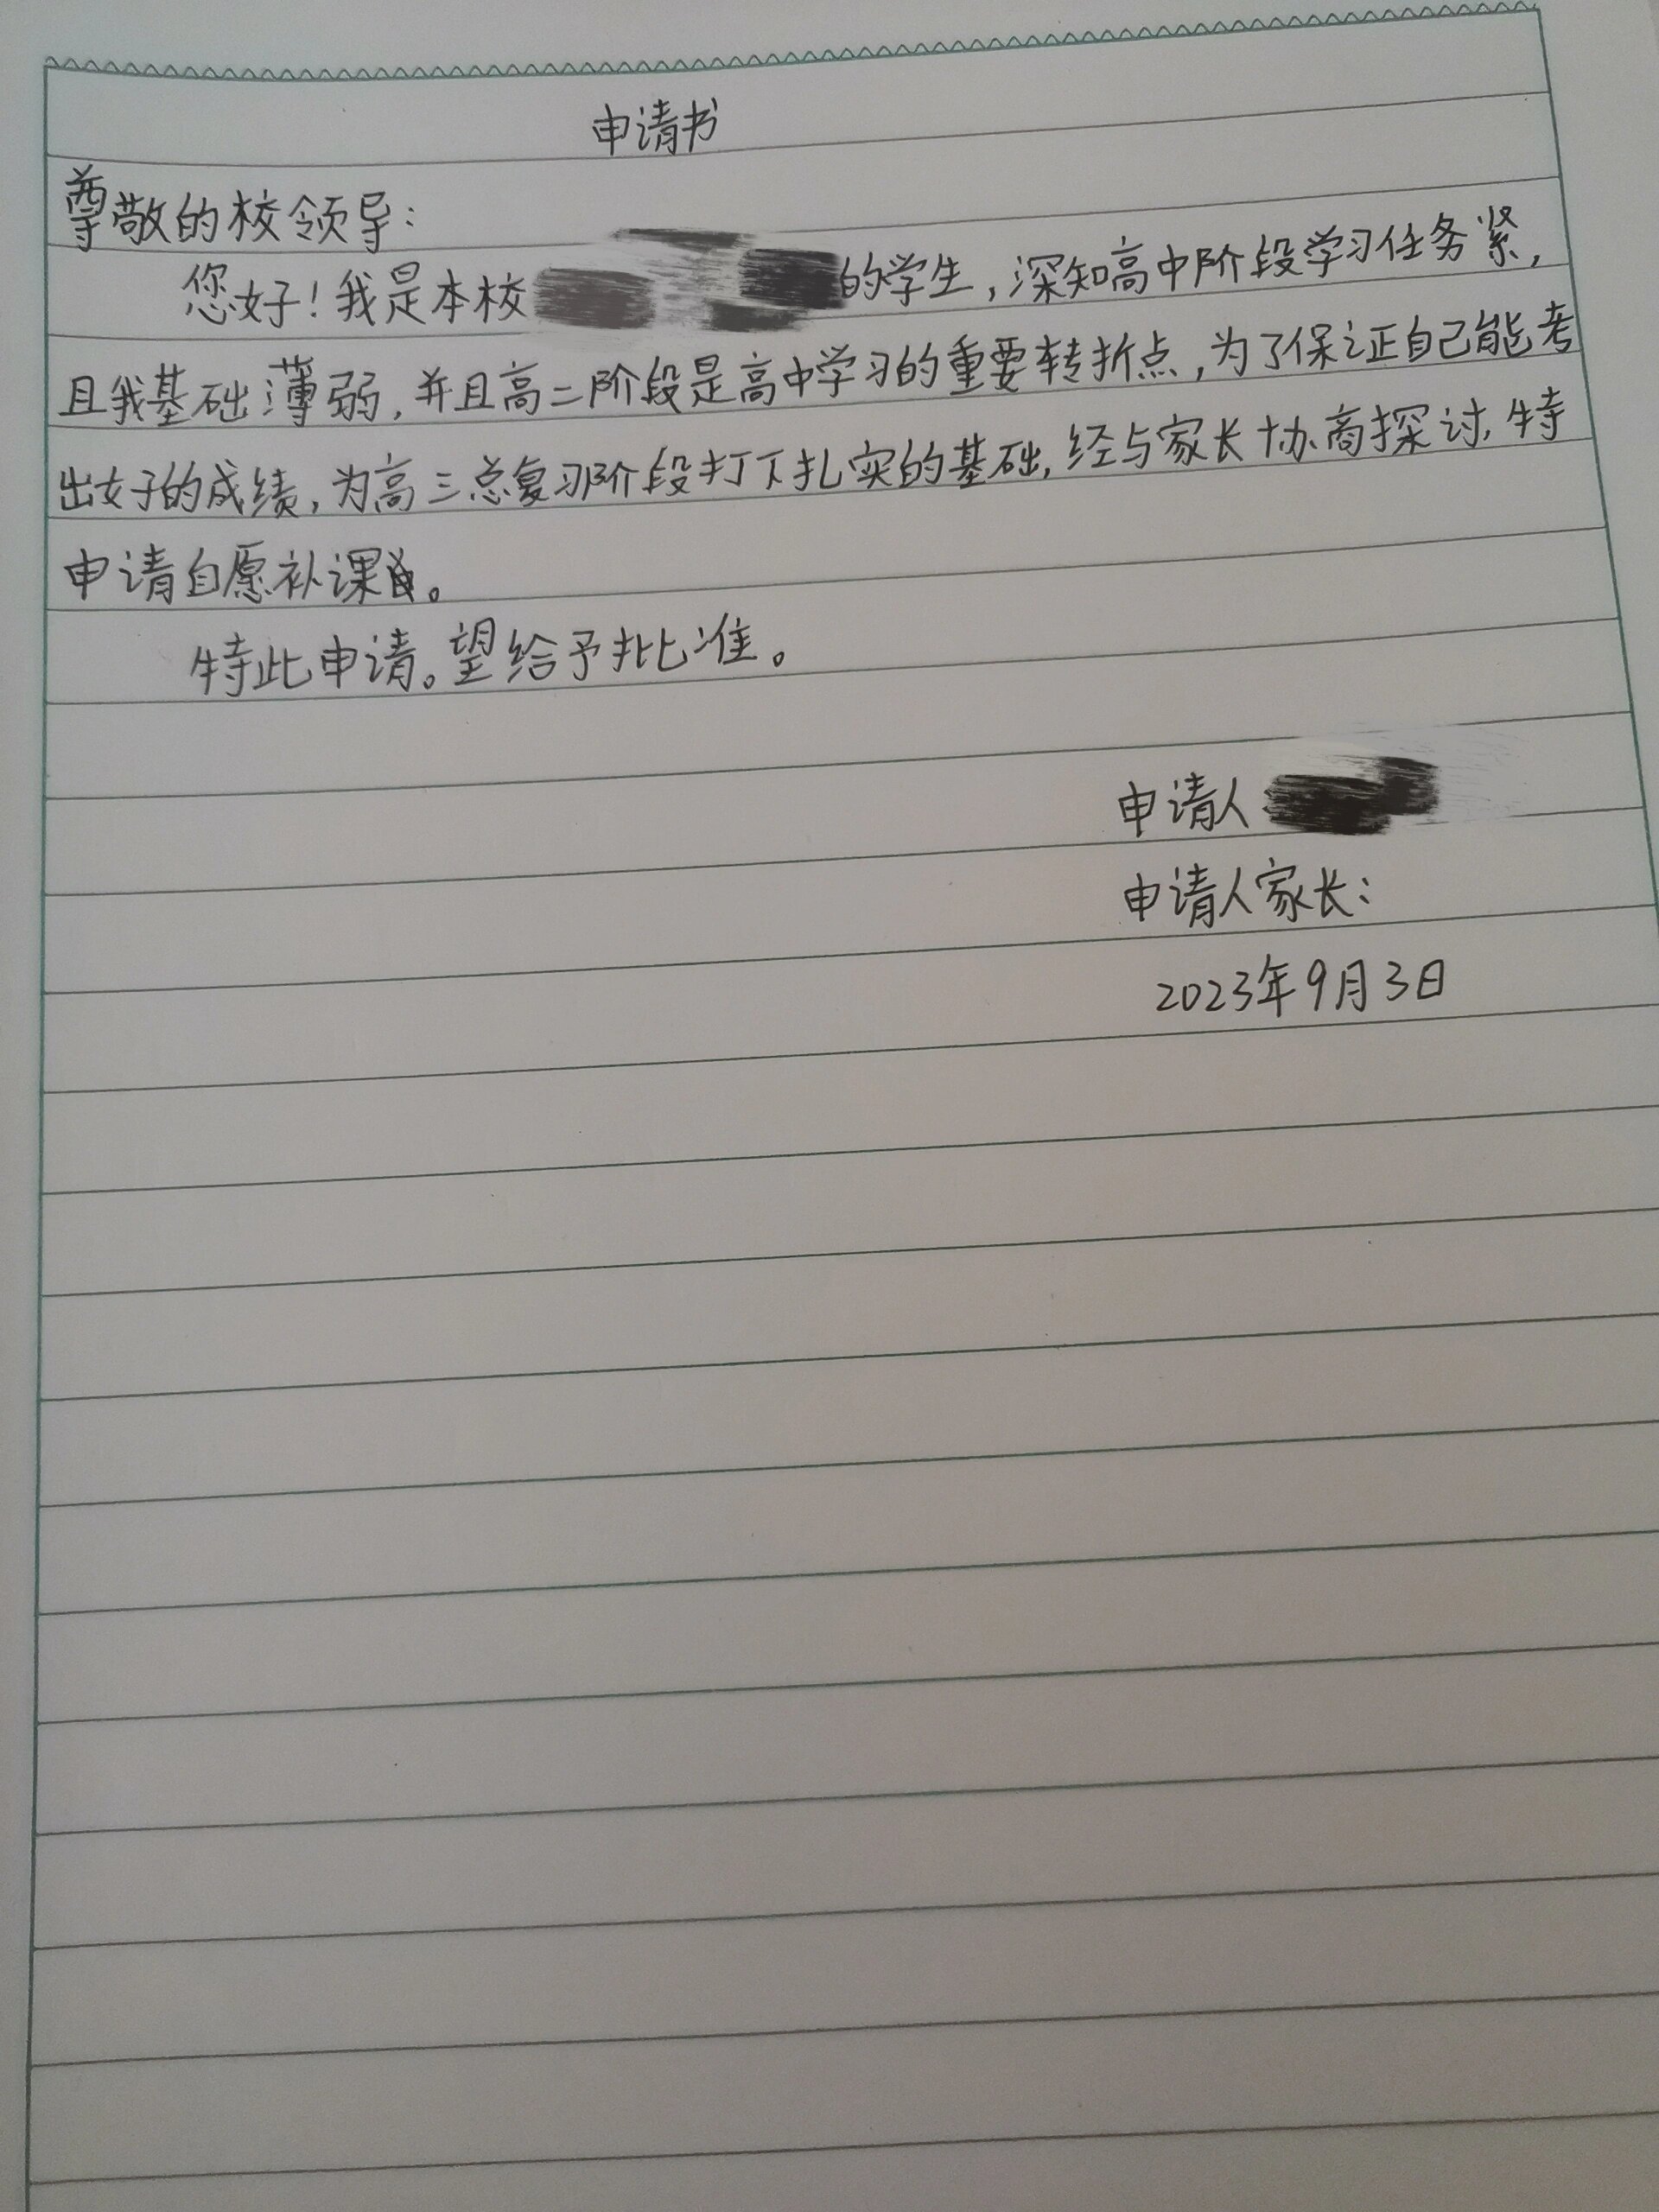 申请书
尊敬的校领导：
您好！我是本校的学生，深知高中阶段学习任务紧，
且我基础薄弱，并且高二阶段是高中学习的重要转折点，为了保证自己能考
出好的成绩，为高三总复习阶段打下扎实的基础，经与家长协商探讨，特
申请自愿补课。
特此申请。望给予批准。
申请人
申请人家长：
2023年9月3日